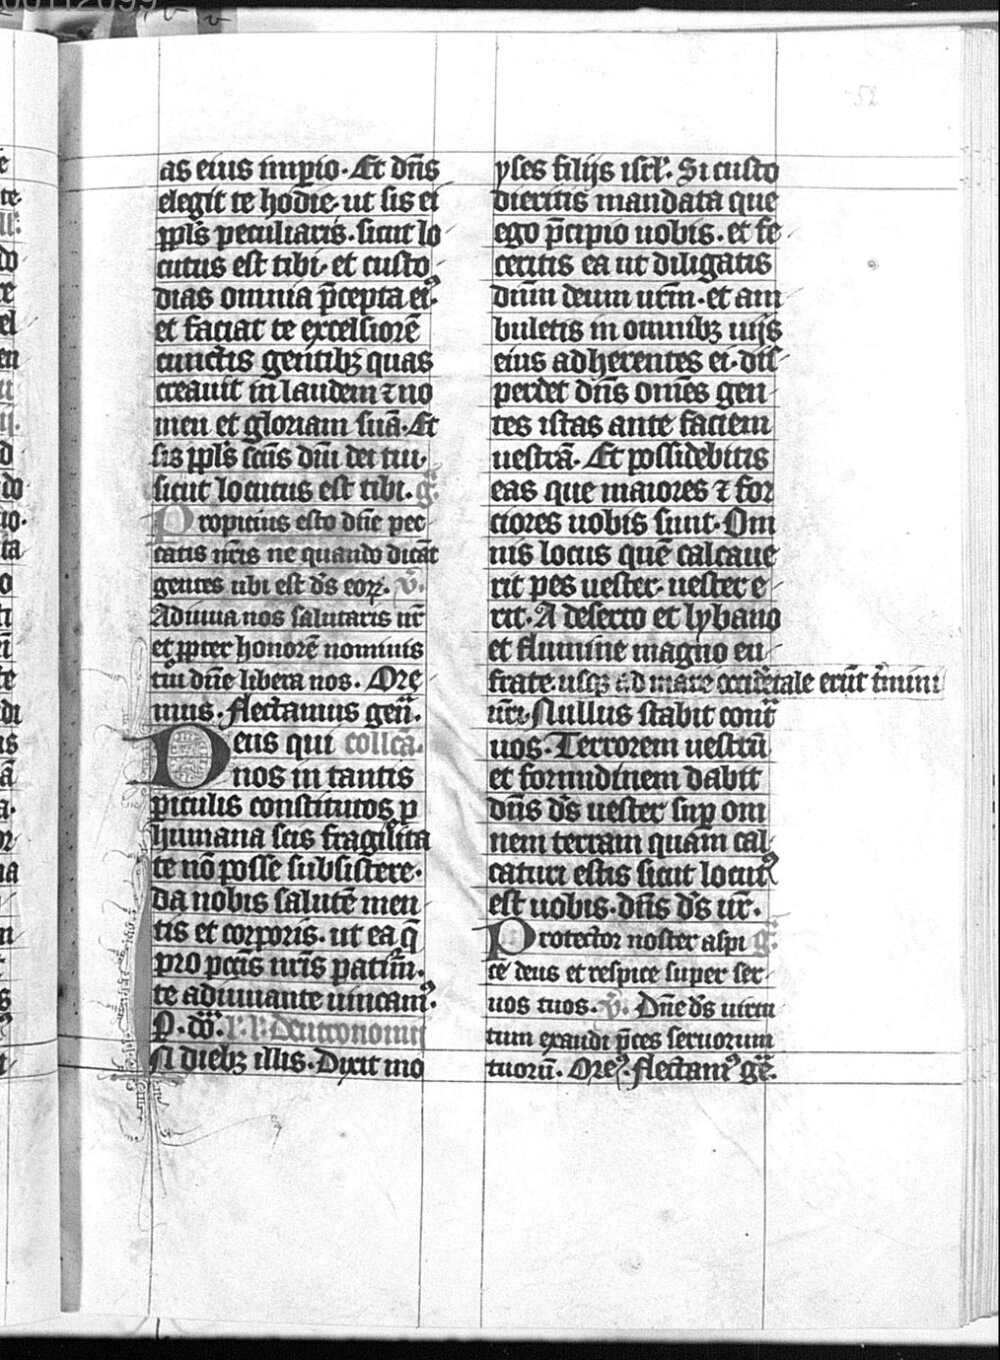 52
as eius impio. Et dn̄s
elegit te hodie. ut sis ei
ppl̄s peculiaris. sicut lo
cutus est tibi. et custo
dias omnia p̄cepta eiꝰ
et faciat te excelsiorē
cunctis gentibꝫ quas
creauit in laudem ⁊ no
men et gloriam suā. Et
sis ppl̄s sc̄us dn̄i dei tui.
sicut locutus est tibi. gͬ.
Propicius esto dn̄e pec
catis nr̄is ne quando dicāt
gentes ubi est ds̄ eoꝝ. v̄.
Adiuua nos salutaris nr̄
et ꝓpter honorē nominis
tui dn̄e libera nos. Ore
mus. flectamus genͣ.
Deus qui collcā.
nos in tantis
ꝑiculis constitutos ꝓ
humana scis fragilita
te nō posse subsistere.
da nobis salutē men
tis et corporis. ut ea q̄
pro pcc̄is nr̄is patim̄.
te adiuuante uincamꝰ.
P. dō. l. l. Deutronomii
N diebꝫ illis. Dixit mo
yses filijs isrl̄. Si custo
dieritis mandata que
ego p̄cipio uobis. et fe
ceritis ea ut diligatis
dn̄m deum ur̄m. et am
buletis in omnibꝫ uijs
eius adherentes ei. dis
perdet dn̄s omēs gen
tes istas ante faciem
uestrā. Et possidebitis
eas que maiores ⁊ for
ciores uobis sunt. Om
nis locus quē calcaue
rit pes uester. uester e
rit. A deserto et lybano
et flumine magno eu
frate. usqꝫ ad mare occidētale erūt t̄mini
ur̄i. Nullus stabit contͣ
uos. Terrorem uestrū
et formidinem dabit
dn̄s ds̄ uester suꝑ om
nem terram quam cal
caturi estis sicut locutꝰ
est uobis. dn̄s ds̄ ur̄.
Protector noster aspi gͬ.
ce deus et respice super ser
uos tuos. v̄. Dn̄e ds̄ uirtu
tum exaudi p̄ces seruorum
tuorū. Oreꝰ. flectamꝰ gēͣ.